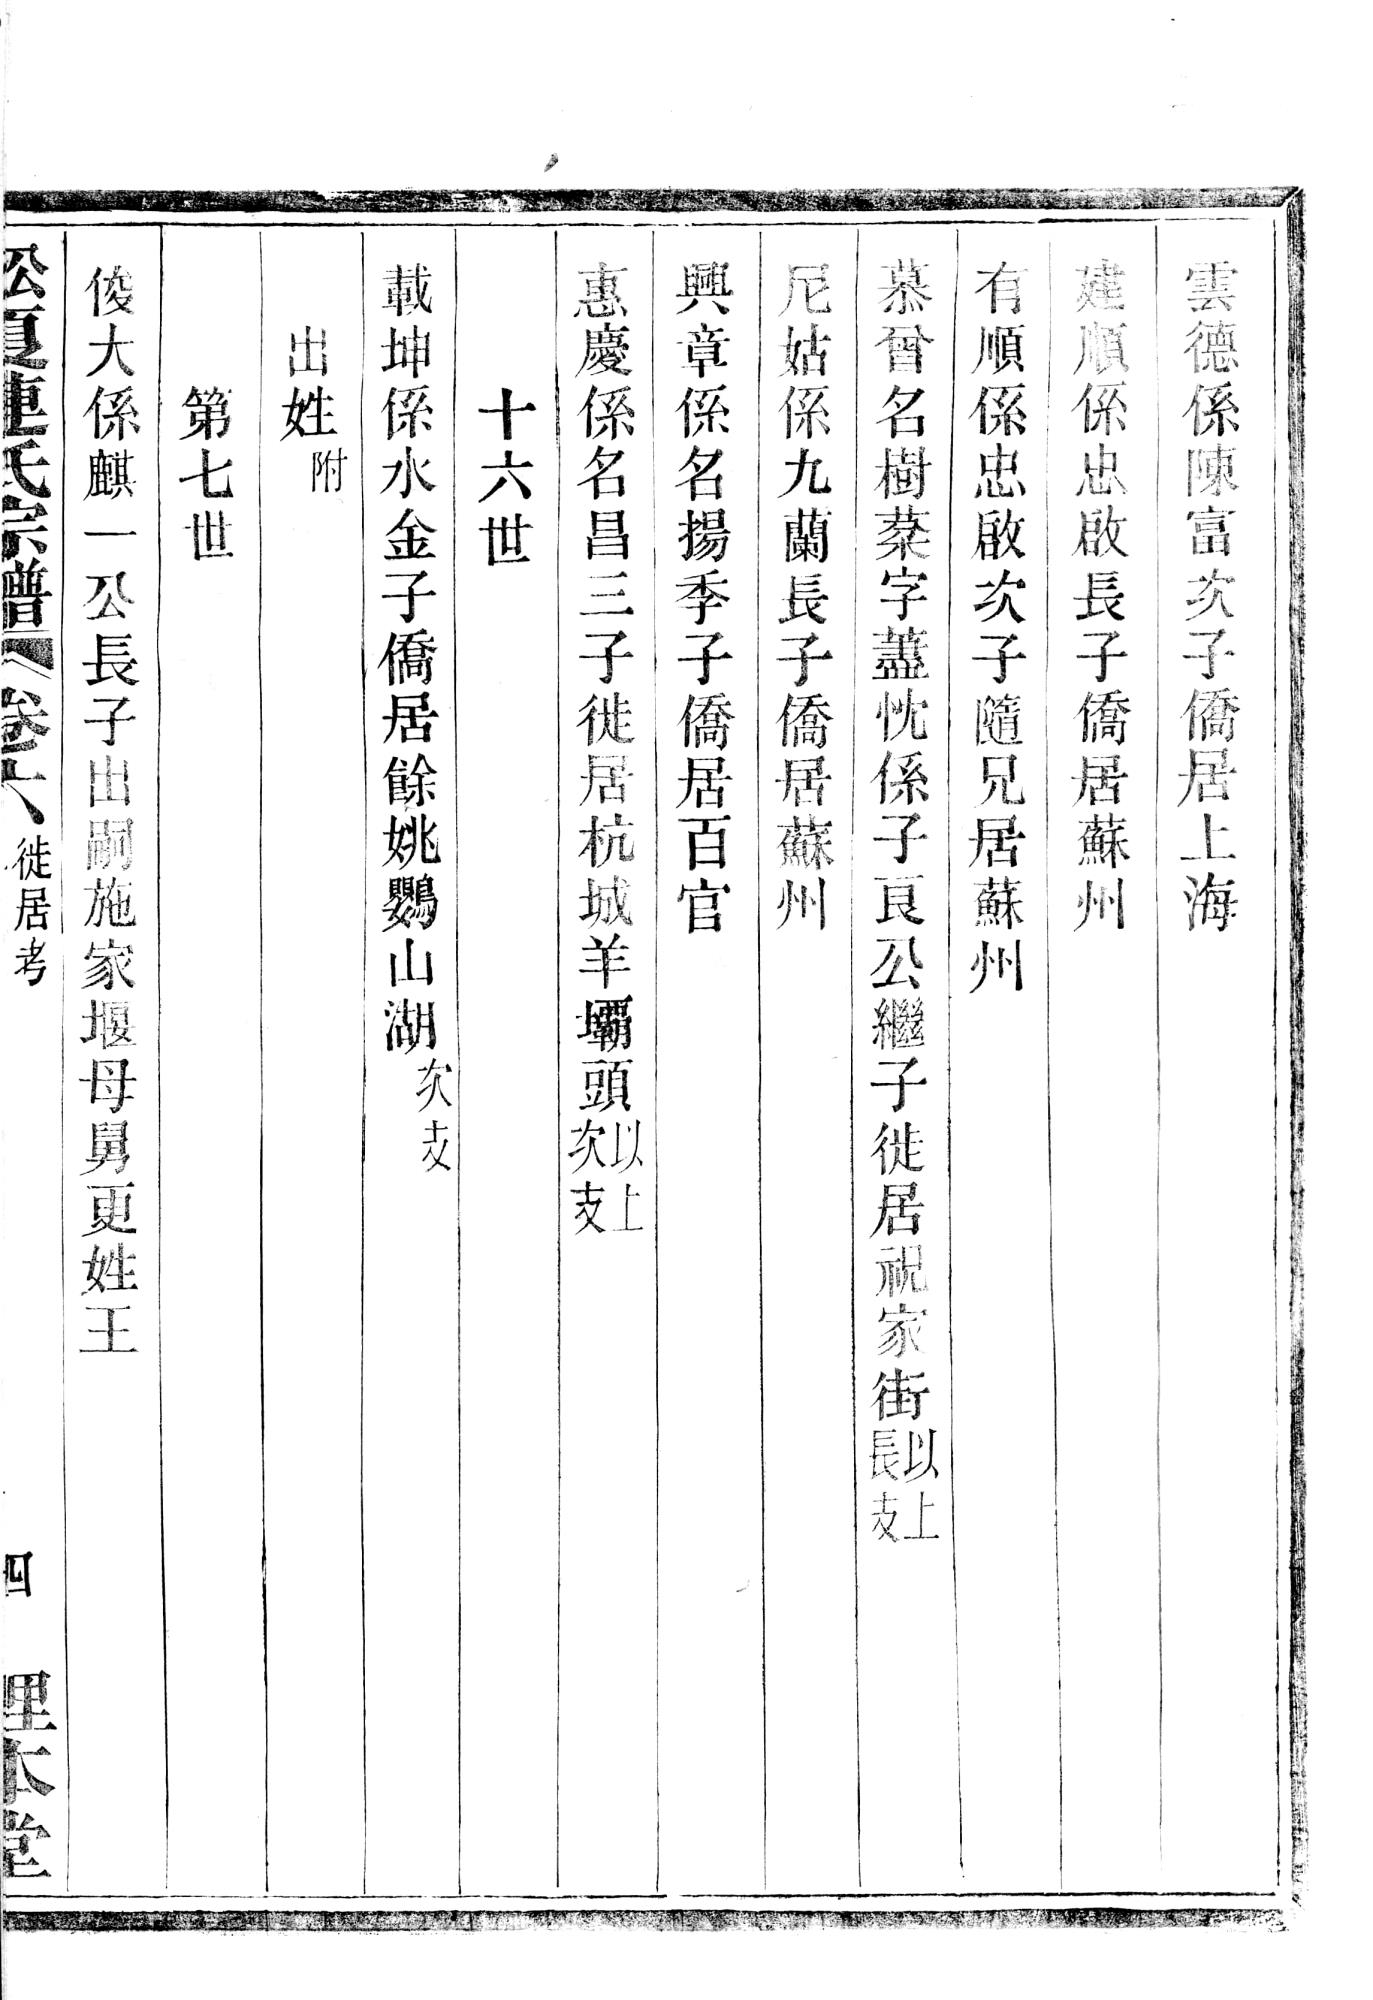 雲德係陳富次子僑居上海
建順係忠啟長子僑居蘇州
有順係忠啟次子隨兄居蘇州
慕曾名樹棻字藎忱係子良公繼子徙居祝家街以上長支
尼姑係九蘭長子僑居蘇州
興章係名揚季子僑居百官
惠慶係名昌三子徙居杭城羊壩頭以上次支
十六世
載坤係水金子僑居餘姚鸚山湖次支
出姓附
第七世
俊大係麒一公長子出嗣施家堰母舅更姓王
松夏連氏宗譜 卷十八 徙居考 四 理本堂